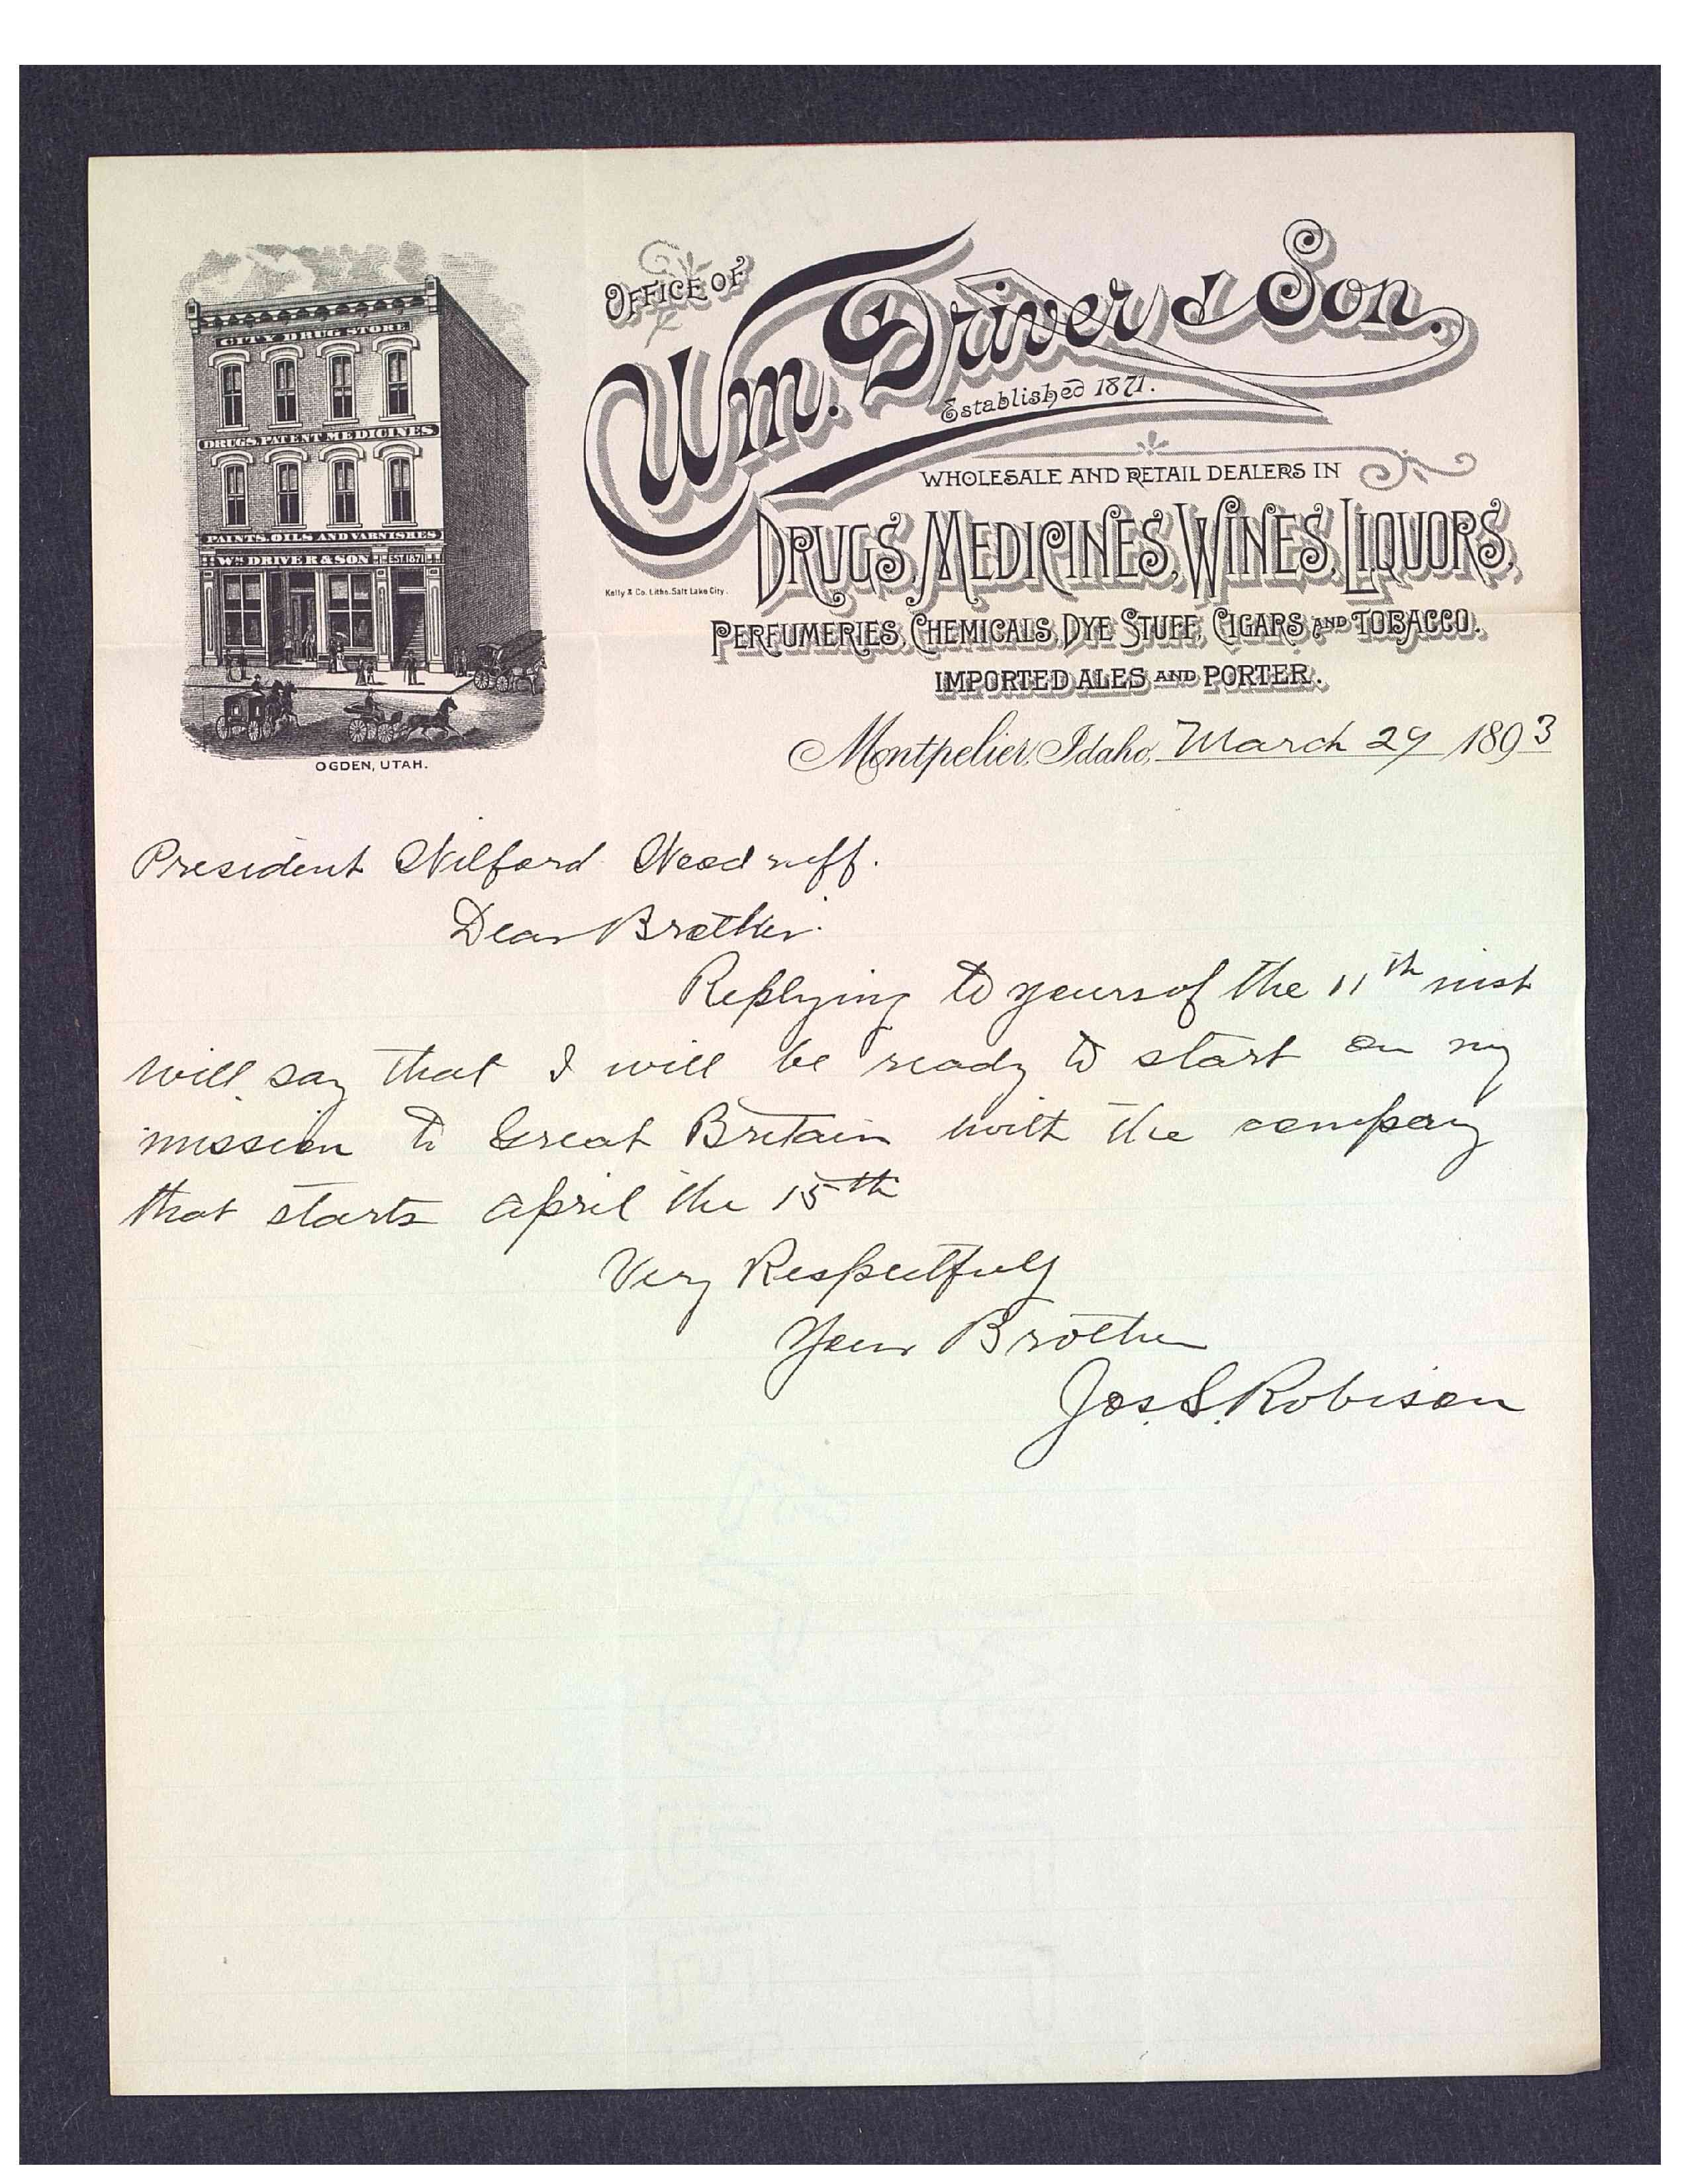 OFFICE OF
Wm. Driver & Son.
Established 1871.
WHOLESALE AND RETAIL DEALERS IN
DRUGS, MEDICINES, WINES, LIQUORS,
PERFUMERIES, CHEMICALS, DYE STUFF, CIGARS AND TOBACCO.
IMPORTED ALES AND PORTER.
Kelly & Co. Liths. Salt Lake City.
CITY DRUG STORE
DRUGS, PATENT MEDICINES
PAINTS, OILS AND VARNISHES
Wm DRIVER & SON EST. 1871
OGDEN, UTAH.
Montpelier, Idaho, March 29 1893
President Wilford Woodruff.
Dear Brother.
Replying to yours of the 11th inst
will say that I will be ready to start on my
mission to Great Britain with the company
that starts April the 15th
Very Respectfuly
Your Brother
Jos. S. Robison